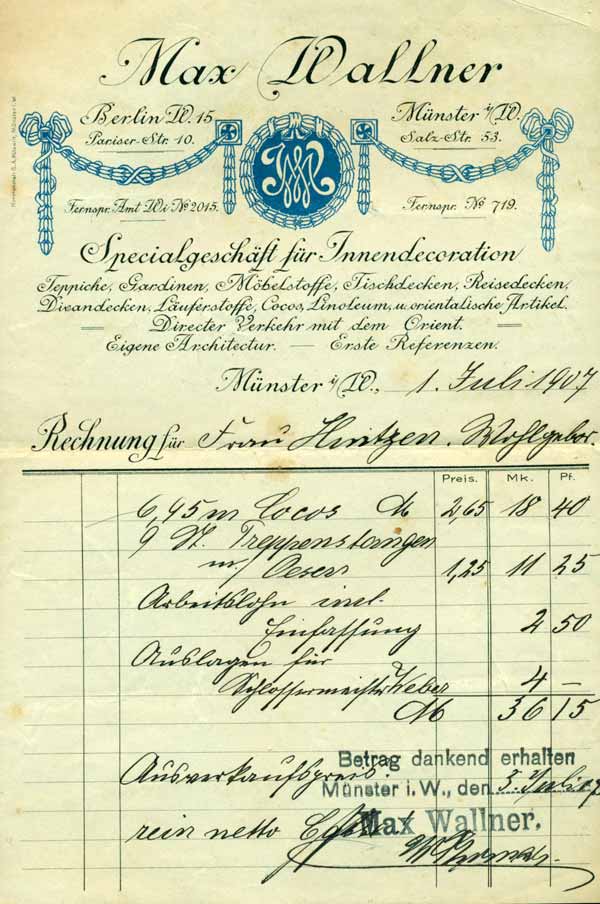 Max Wallner
Berlin W. 15
Pariser-Str. 10.
Münster i/W.
Salz-Str. 53.
Fernspr. Amt Wi No 2015.
Fernspr. No 719.
Specialgeschäft für Innendecoration
Teppiche, Gardinen, Möbelstoffe, Tischdecken, Reisedecken,
Divandecken, Läuferstoffe, Cocos, Linoleum, u. orientalische Artikel.
Directer Verkehr mit dem Orient.
Eigene Architectur. — Erste Referenzen.
Münster i/W., 1. Juli 1907
Rechnung für Frau Hintzen. Wohlgebor.
Preis. Mk. Pf.
6,95 m Cocos M 2,65 18 40
9 St. Treppenstangen
m/ Oesen 1,25 11 25
Arbeitslohn incl.
Einfassung 2 50
Auslagen für
Schlossermeister Weber 4 —
M 36 15
Betrag dankend erhalten
Ausverkaufspreis: Münster i. W., den 3. Juli 07
rein netto Max Wallner.